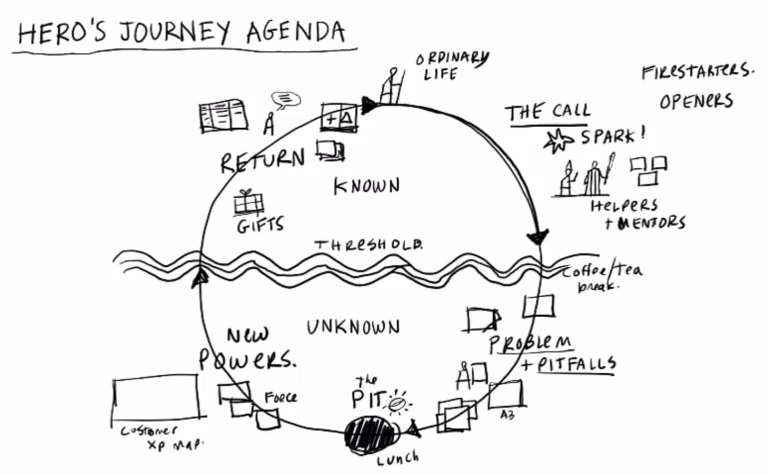 HERO'S JOURNEY AGENDA
ORDINARY
LIFE
FIRESTARTERS.
OPENERS
THE CALL
SPARK!
HELPERS
+ MENTORS
+Δ
RETURN
KNOWN
GIFTS
THRESHOLD.
Coffee/tea
break.
UNKNOWN
PROBLEM
+ PITFALLS
NEW
POWERS.
the
PIT
FORCE
A3
Customer
XP Map.
Lunch